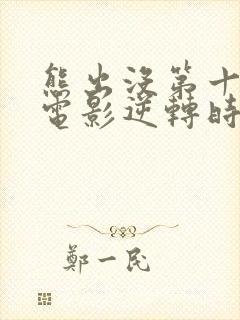 熊出没第十
電影逆轉時
鄭一民